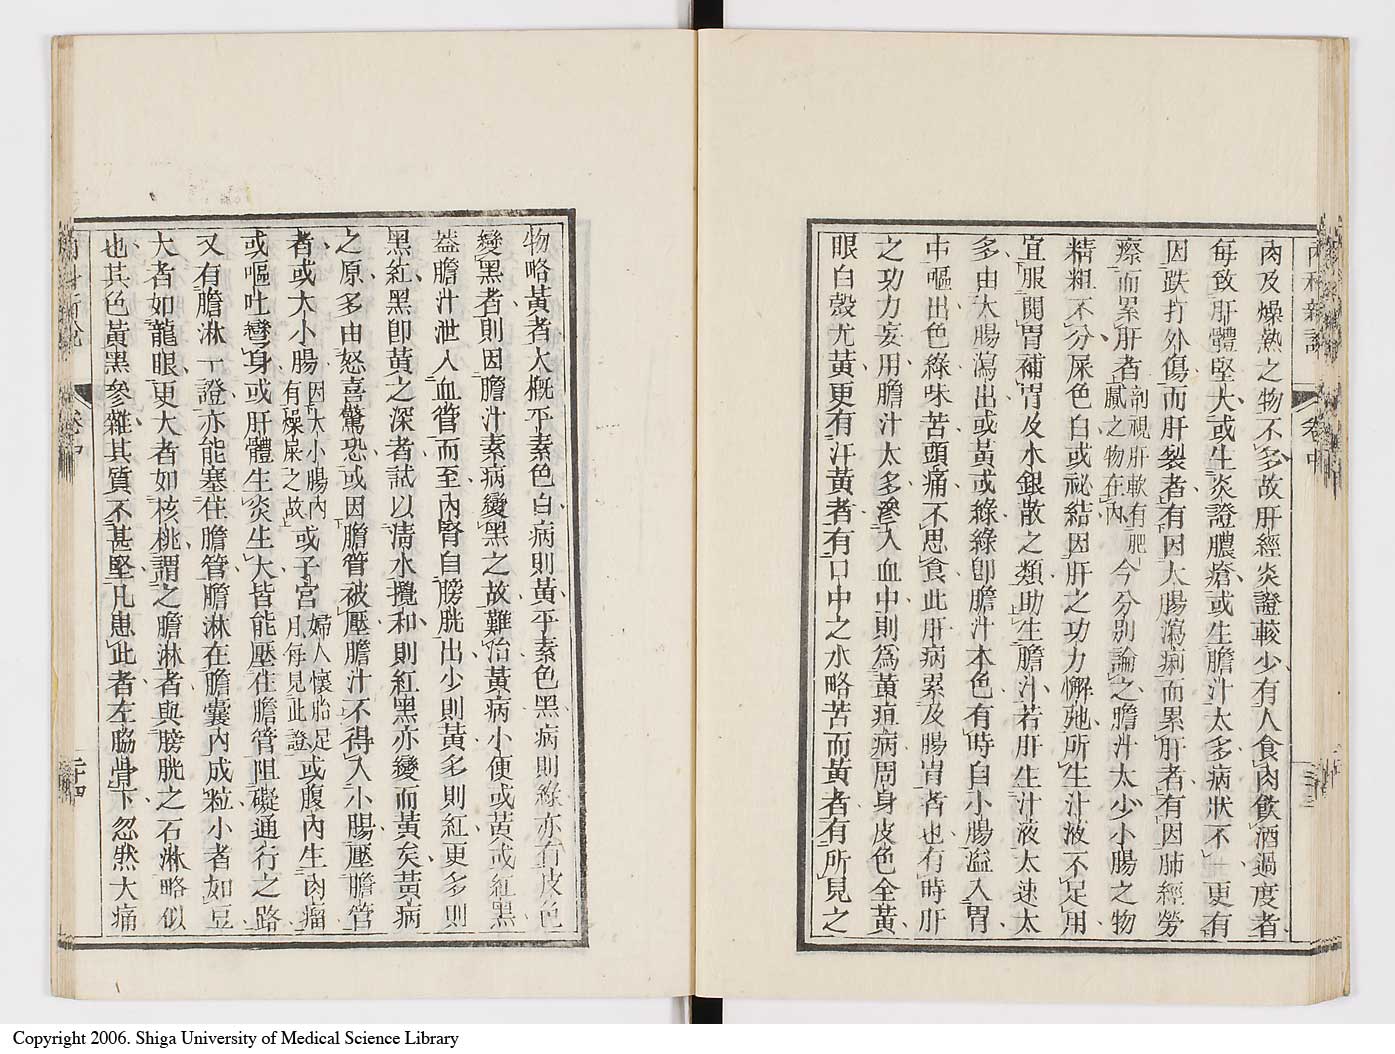 內科新說
肉及燥熱之物不多故肝經炎證較少有人食肉飲酒過度者
每致肝體堅大或生炎證膿瘡或生膽汁太多病狀不一更有
因跌打外傷而肝裂者有因大腸瀉痢而累肝者有因肺經勞
瘵而累肝者剖視肝軟有肥膩之物在內今分別論之膽汁太少小腸之物
精粗不分屎色白或祕結因肝之功力懈弛所生汁液不足用
宜服開胃補胃及水銀散之類助生膽汁若肝生汁液太速太
多由大腸瀉出或黃或綠綠卽膽汁本色有時自小腸溢入胃
中嘔出色綠味苦頭痛不思食此肝病累及腸胃者也有時肝
之功力妄用膽汁太多滲入血中則為黃疸病周身皮色全黃
眼白殼尤黃更有汗黃者有口中之水略苦而黃者有所見之
物略黃者大概平素色白病則黃平素色黑病則綠亦有皮色
變黑者則因膽汁素病變黑之故難治黃病小便或黃或紅黑
蓋膽汁泄入血管而至內腎自膀胱出少則黃多則紅更多則
黑紅黑卽黃之深者試以清水攪和則紅黑亦變而黃矣黃病
之原多由怒喜驚恐或因膽管被壓膽汁不得入小腸壓膽管
者或大小腸因大小腸內有燥屎之故或子宮婦人懷胎足月每見此證或腹內生肉瘤
或嘔吐彎身或肝體生炎生大皆能壓住膽管阻礙通行之路
又有膽淋一證亦能塞住膽管膽淋在膽囊內成粒小者如豆
大者如龍眼更大者如核桃謂之膽淋者與膀胱之石淋略似
也其色黃黑參雜其質不甚堅凡患此者左脇骨下忽然大痛
二十四
Copyright 2006. Shiga University of Medical Science Library